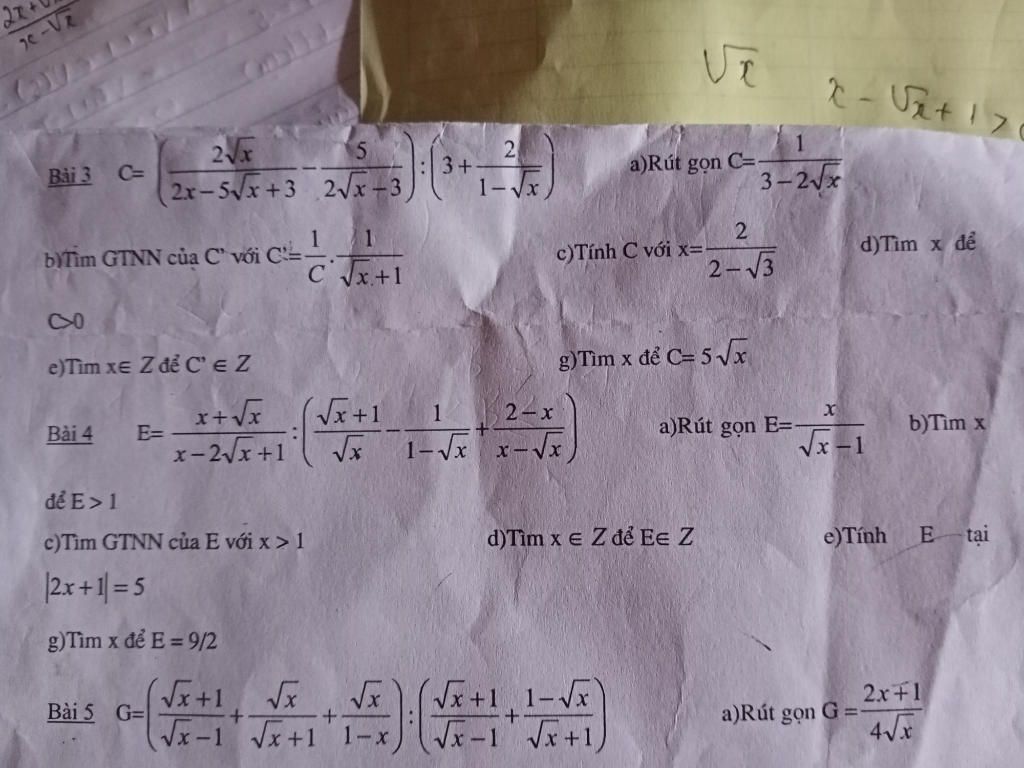 2x+√x / x-√x
√x
x - √x + 1 >
Bài 3 C= (2√x/(2x-5√x+3) - 5/(2√x-3)) : (3+2/(1-√x)) a)Rút gọn C=1/(3-2√x)
b)Tìm GTNN của C' với C'=1/C . 1/(√x+1) c)Tính C với x=2/(2-√3) d)Tìm x để
C>0
e)Tìm x∈ Z để C' ∈ Z g)Tìm x để C= 5√x
Bài 4 E= (x+√x)/(x-2√x+1) : ((√x+1)/√x - 1/(1-√x) + (2-x)/(x-√x)) a)Rút gọn E=x/(√x-1) b)Tìm x
để E > 1
c)Tìm GTNN của E với x > 1 d)Tìm x ∈ Z để E∈ Z e)Tính E tại
|2x+1| = 5
g)Tìm x để E = 9/2
Bài 5 G=((√x+1)/(√x-1) + √x/(√x+1) + √x/(1-x)) : ((√x+1)/(√x-1) + (1-√x)/(√x+1)) a)Rút gọn G =(2x+1)/(4√x)